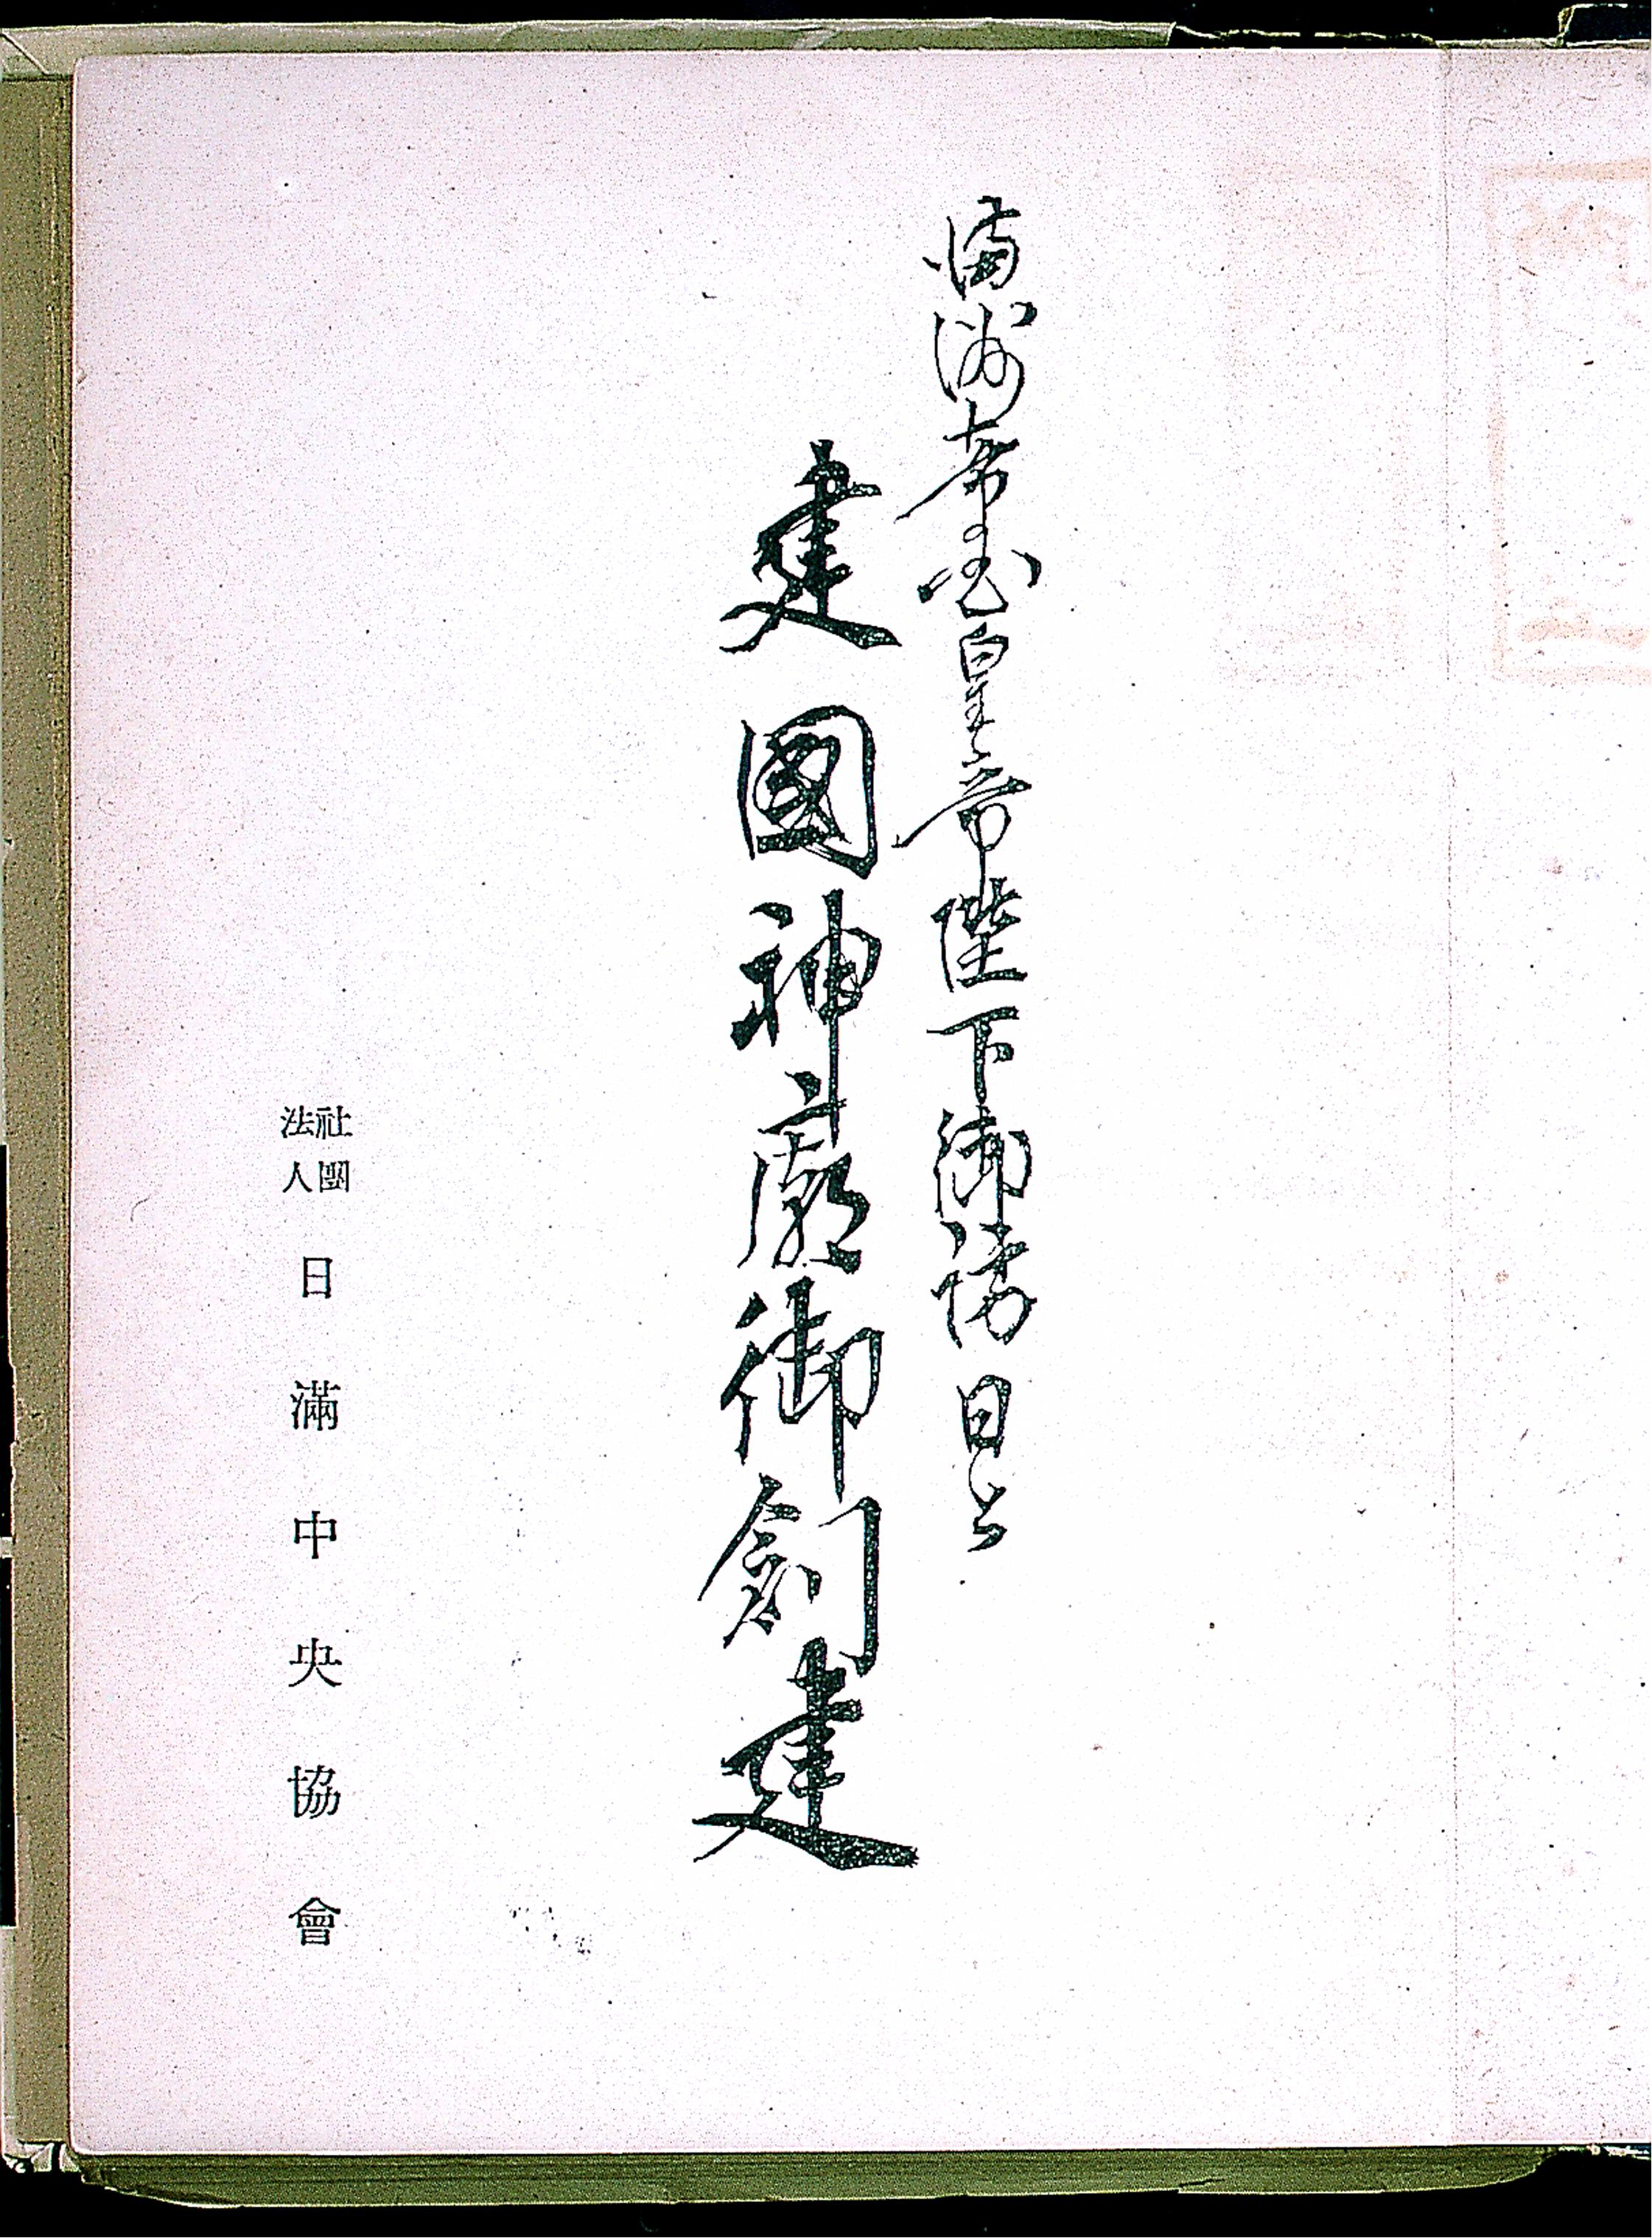 満洲帝国皇帝陛下御訪日と
建國神廟御創建
社團法人 日滿中央協會